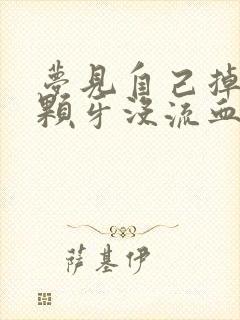 夢見自己掉
顆牙沒流血
萨基伊